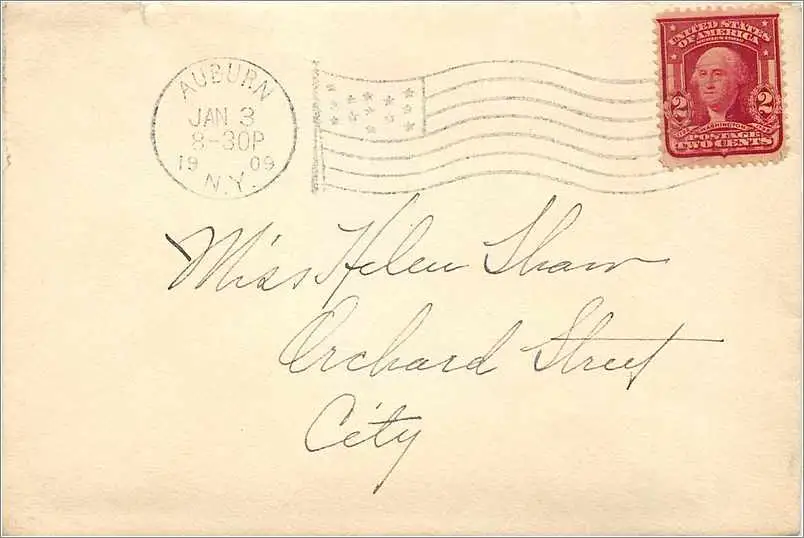 AUBURN
JAN 3
8-30P
19 09
N.Y.
UNITED STATES
OF AMERICA
2 2
WASHINGTON
POSTAGE
TWO CENTS
Miss Helen Shaw
Orchard Street
City